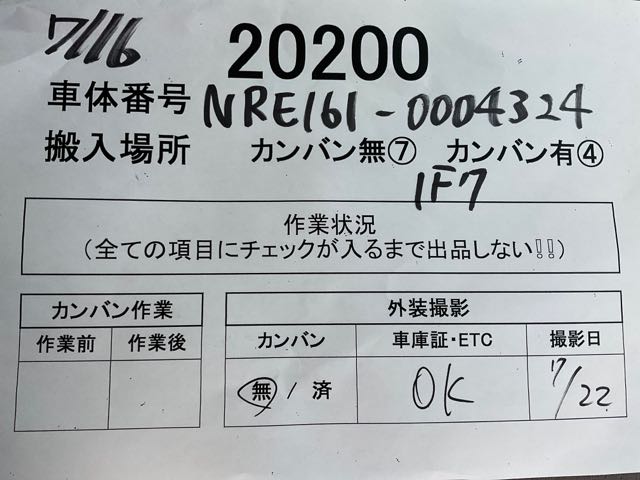 7/16
20200
車体番号 NRE161-0004324
搬入場所 カンバン無⑦ カンバン有④
1F7
作業状況
(全ての項目にチェックが入るまで出品しない!!)
カンバン作業
作業前 作業後
外装撮影
カンバン 車庫証・ETC 撮影日
無 / 済 OK 7/22